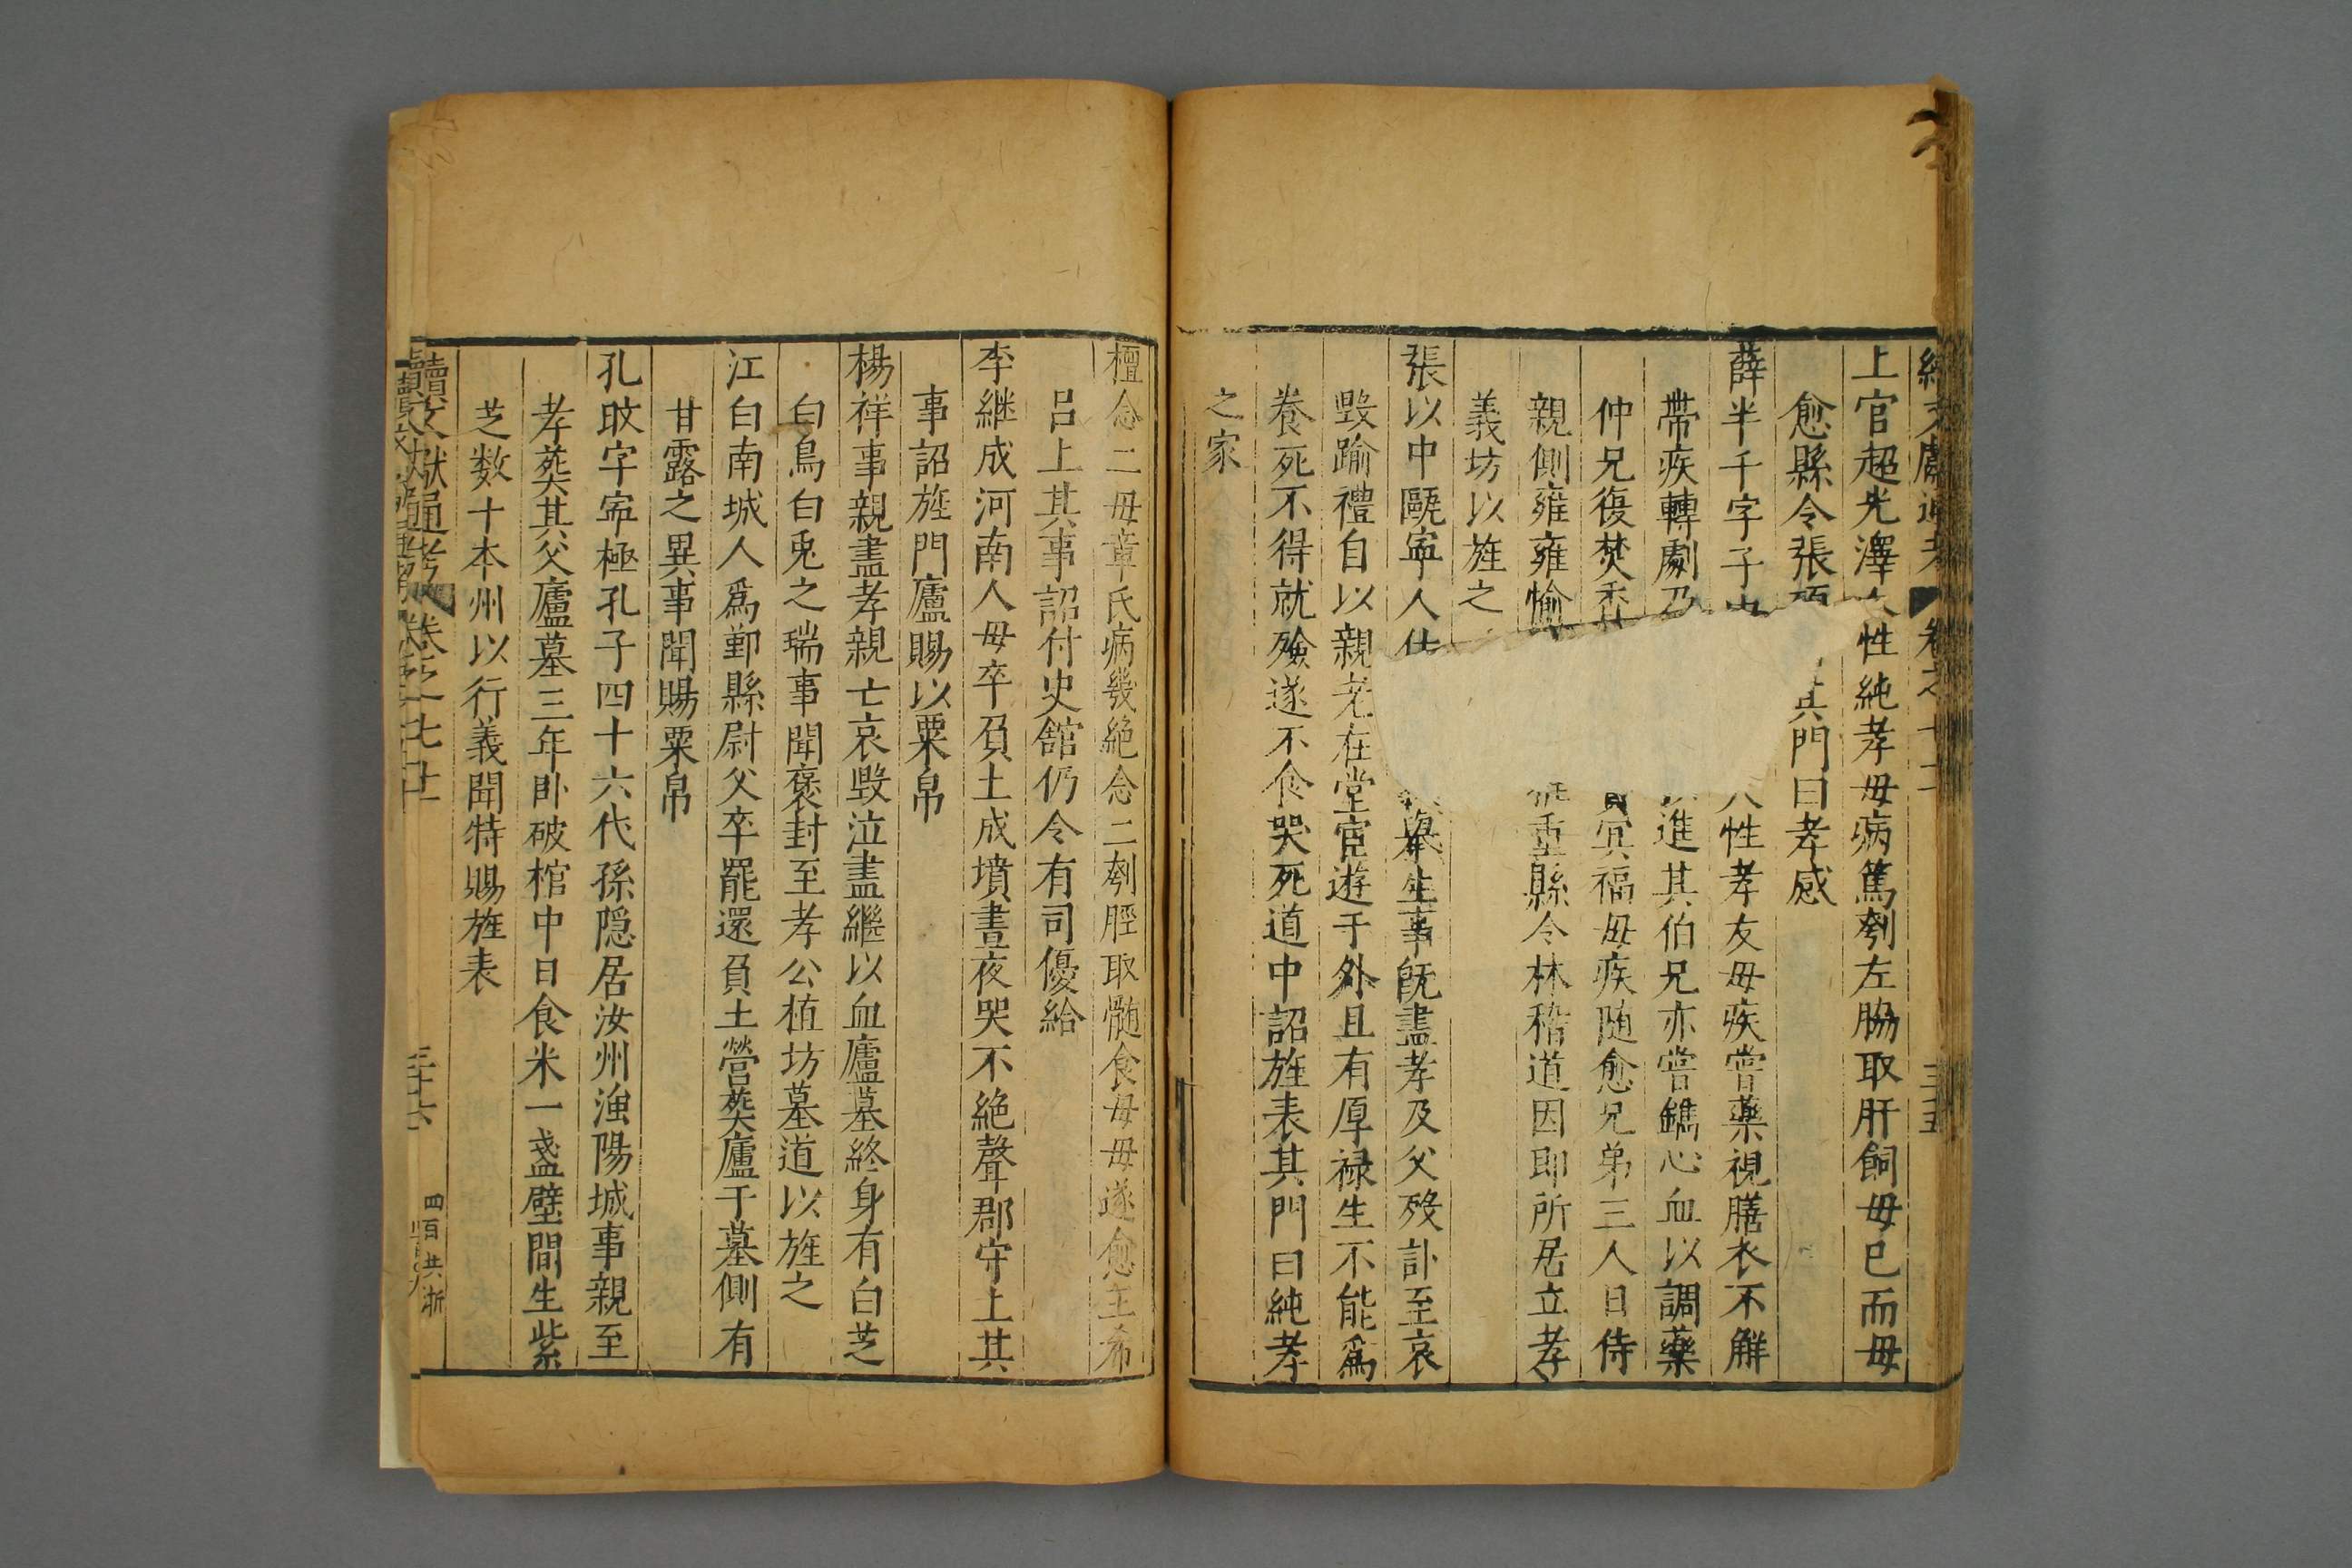 上官超光澤人性純孝母病篤刳左脇取肝飼母已而母
愈縣令張 其門曰孝感
薛半千字子 人性孝友母疾嘗藥視膳衣不解
帶疾轉劇乃 進其伯兄亦嘗鐫心血以調藥
仲兄復焚香 冥福母疾随愈兄弟三人日侍
親側雍雍愉 重縣令林稽道因即所居立孝
義坊以旌之
張以中甌寕人仕 舉生事旣盡孝及父歿訃至哀
毀踰禮自以親老在堂宦遊于外且有厚禄生不能爲
養死不得就殮遂不食哭死道中詔旌表其門曰純孝
之家
檀念二母章氏病幾絶念二刳脛取髄食母母遂愈王希
呂上其事詔付史舘仍令有司優給
李継成河南人母卒負土成墳晝夜哭不絶聲郡守上其
事詔旌門廬賜以粟帛
楊祥事親盡孝親亡哀毀泣盡繼以血廬墓終身有白芝
白烏白兎之瑞事聞褒封至孝公植坊墓道以旌之
江白南城人爲鄞縣尉父卒罷還負土營葬廬于墓側有
甘露之異事聞賜粟帛
孔旼字寕極孔子四十六代孫隱居汝州漁陽城事親至
孝葬其父廬墓三年卧破棺中日食米一盞壁間生紫
芝数十本州以行義聞特賜旌表
續文獻通考 卷之七十 三十六 四百共浙